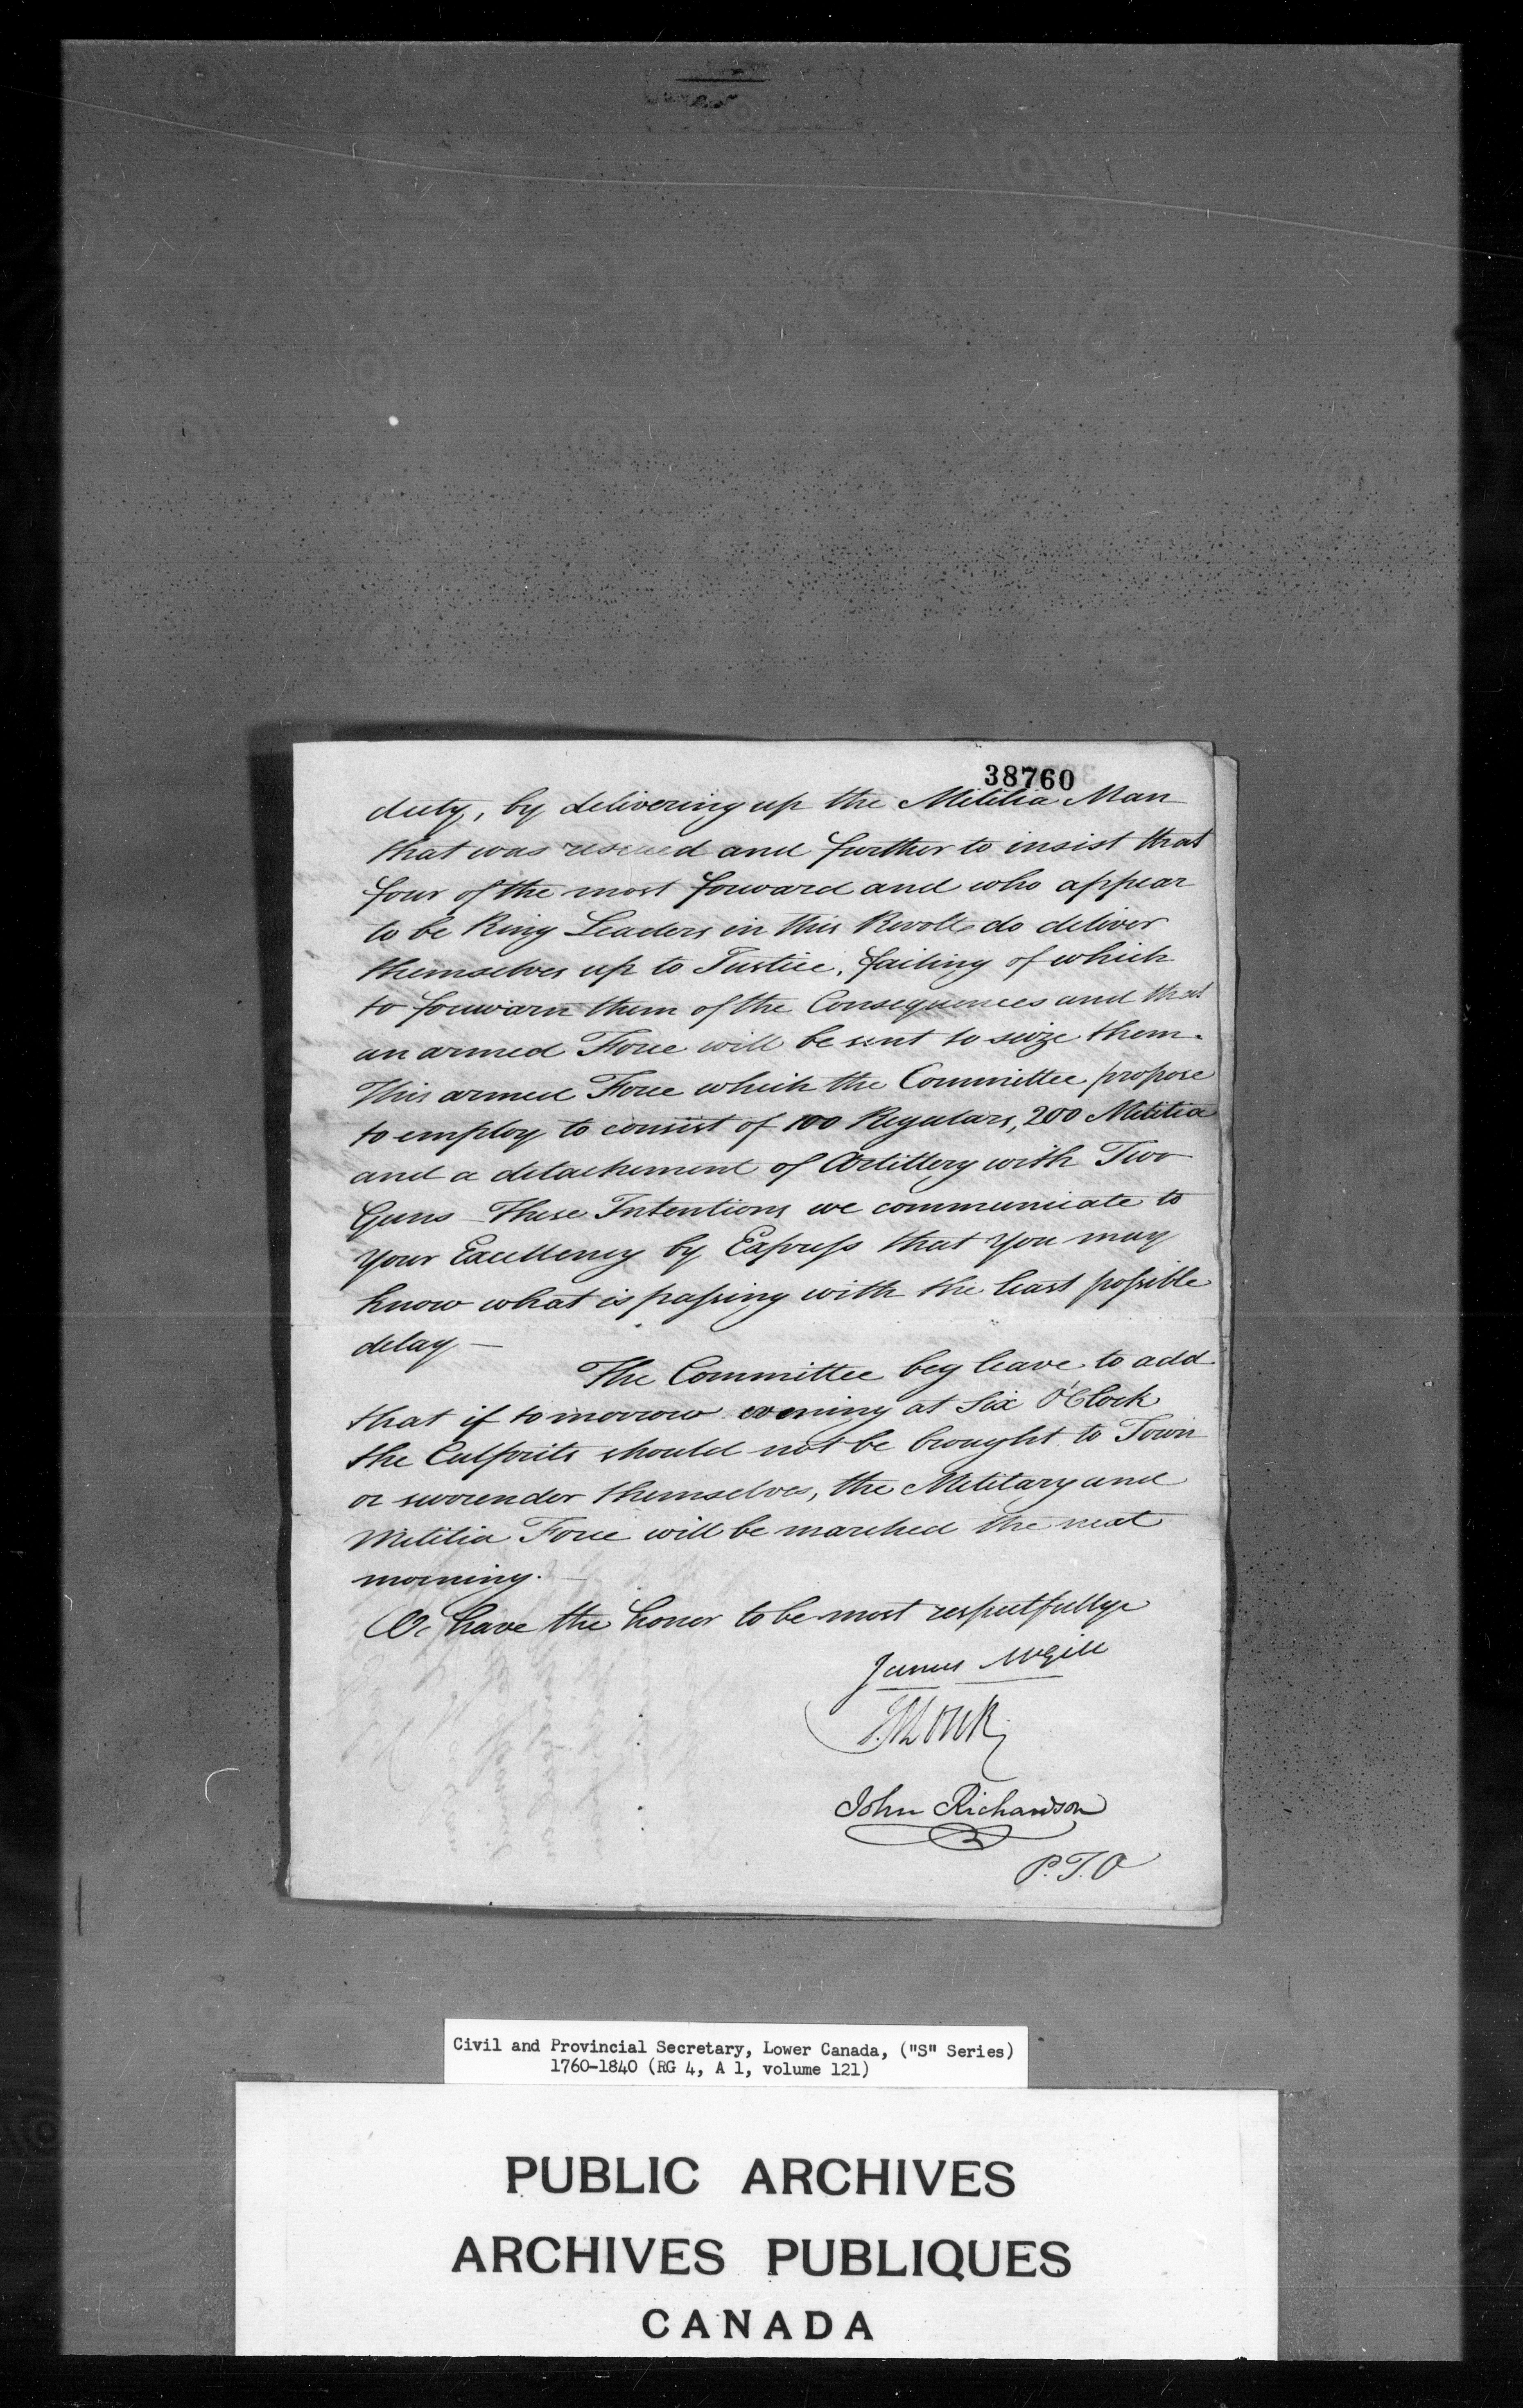 38760
duty, by delivering up the Militia Man
that was rescued and further to insist that
four of the most forward and who appear
to be Ring Leaders in this Revolt do deliver
themselves up to Justice, failing of which
to forwarn them of the Consequences and that
an armed Force will be sent to seize them.
This armed Force which the Committee propose
to employ to consist of 100 Regulars, 200 Militia
and a detachement of Artillery with Two
Guns – These Intentions we communicate to
your Excellency by Express that you may
know what is passing with the least possible
delay –
The Committee beg leave to add
that if tomorrow evening at Six O'Clock
the Culprits should not be brought to Town
or surrender themselves, the Military and
Militia Force will be marched the next
morning. –
We have the honor to be most respectfully
James McGill
J. Monk
John Richardson
P.T.O
Civil and Provincial Secretary, Lower Canada, ("S" Series)
1760-1840 (RG 4, A 1, volume 121)
PUBLIC ARCHIVES
ARCHIVES PUBLIQUES
CANADA